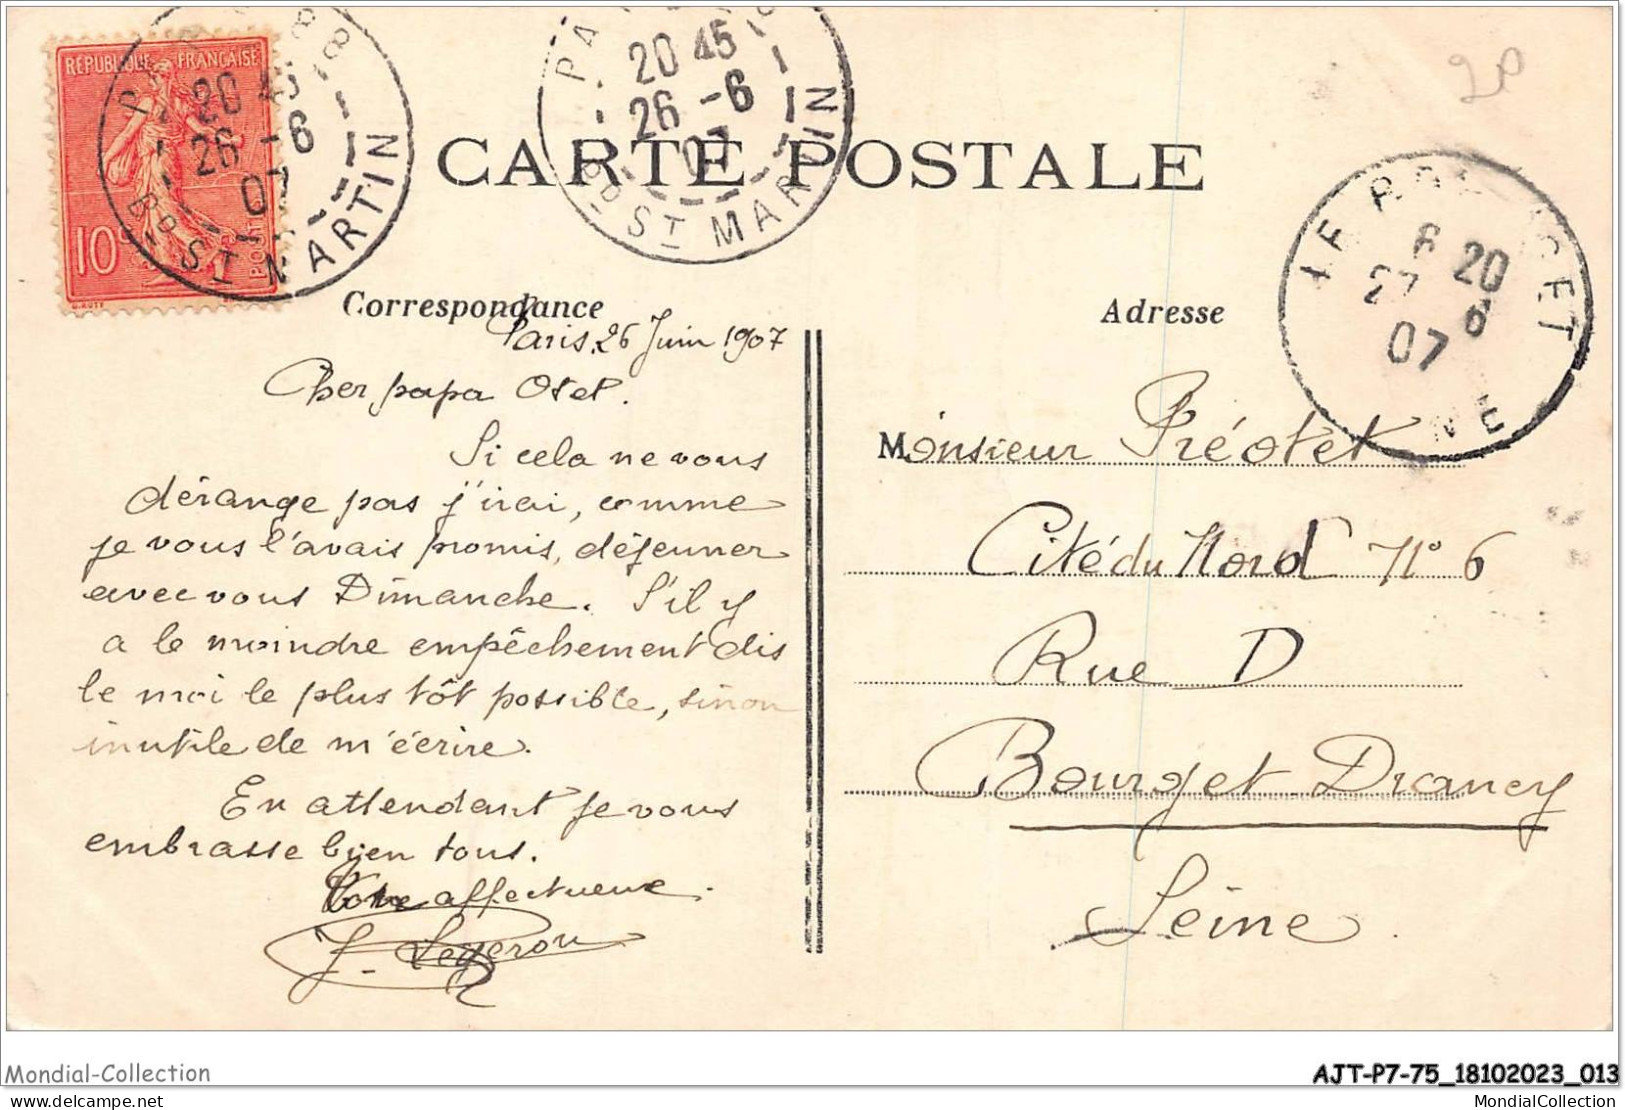 RÉPUBLIQUE FRANÇAISE
10c
POSTES
20 45
26 -6
07
Bd ST MARTIN
20 45
26 -6
07
Bd ST MARTIN
CARTE POSTALE
20
LE BOURGET
6 20
27 6
07
Correspondance
Adresse
Paris, 26 Juin 1907
Cher papa Otet.
Si cela ne vous
dérange pas j'irai, comme
je vous l'avais promis, déjeuner
avec vous Dimanche. S'il y
a le moindre empêchement dis
le moi le plus tôt possible, sinon
inutile de m'écrire.
En attendant je vous
embrasse bien tous.
Votre affectueux.
J. Legeron
Monsieur Préotet
Cité du Nord N° 6
Rue D
Bourget-Drancy
Seine.
Mondial-Collection
AJT-P7-75_18102023_013
delcampe.net
MondialCollection